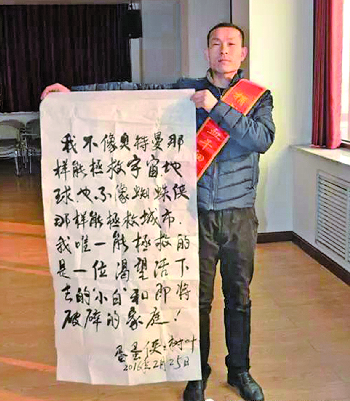 我不像奥特曼那
样能拯救宇宙地
球也不像蜘蛛侠
那样能拯救城市.
我唯一能拯救的
是一位渴望活下
去的小白和即将
破碎的家庭!
蛋蛋侠:树叶
2016年2月25日